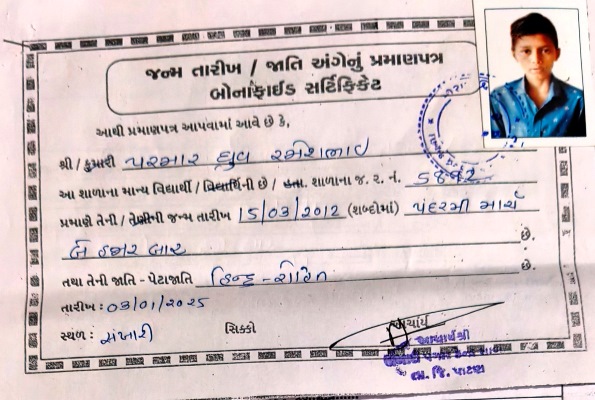 જન્મ તારીખ / જાતિ અંગેનું પ્રમાણપત્ર
બોનાફાઈડ સર્ટિફિકેટ
આથી પ્રમાણપત્ર આપવામાં આવે છે કે,
શ્રી / કુમારી પરમાર ધ્રુવ રમેશભાઈ
આ શાળાના માન્ય વિદ્યાર્થી / વિદ્યાર્થિની છે / હતા. શાળાના જ. ર. નં.
પ્રમાણે તેની / તેણીની જન્મ તારીખ 15/03/2012 (શબ્દોમાં) પંદરમી માર્ચ
બે હજાર બાર છે.
તથા તેની જાતિ - પેટાજાતિ હિન્દુ - રોહિત છે.
તારીખ : 03/01/2025
સ્થળ : સંખારી સિક્કો આચાર્ય
આચાર્યશ્રી
તા. જિ. પાટણ